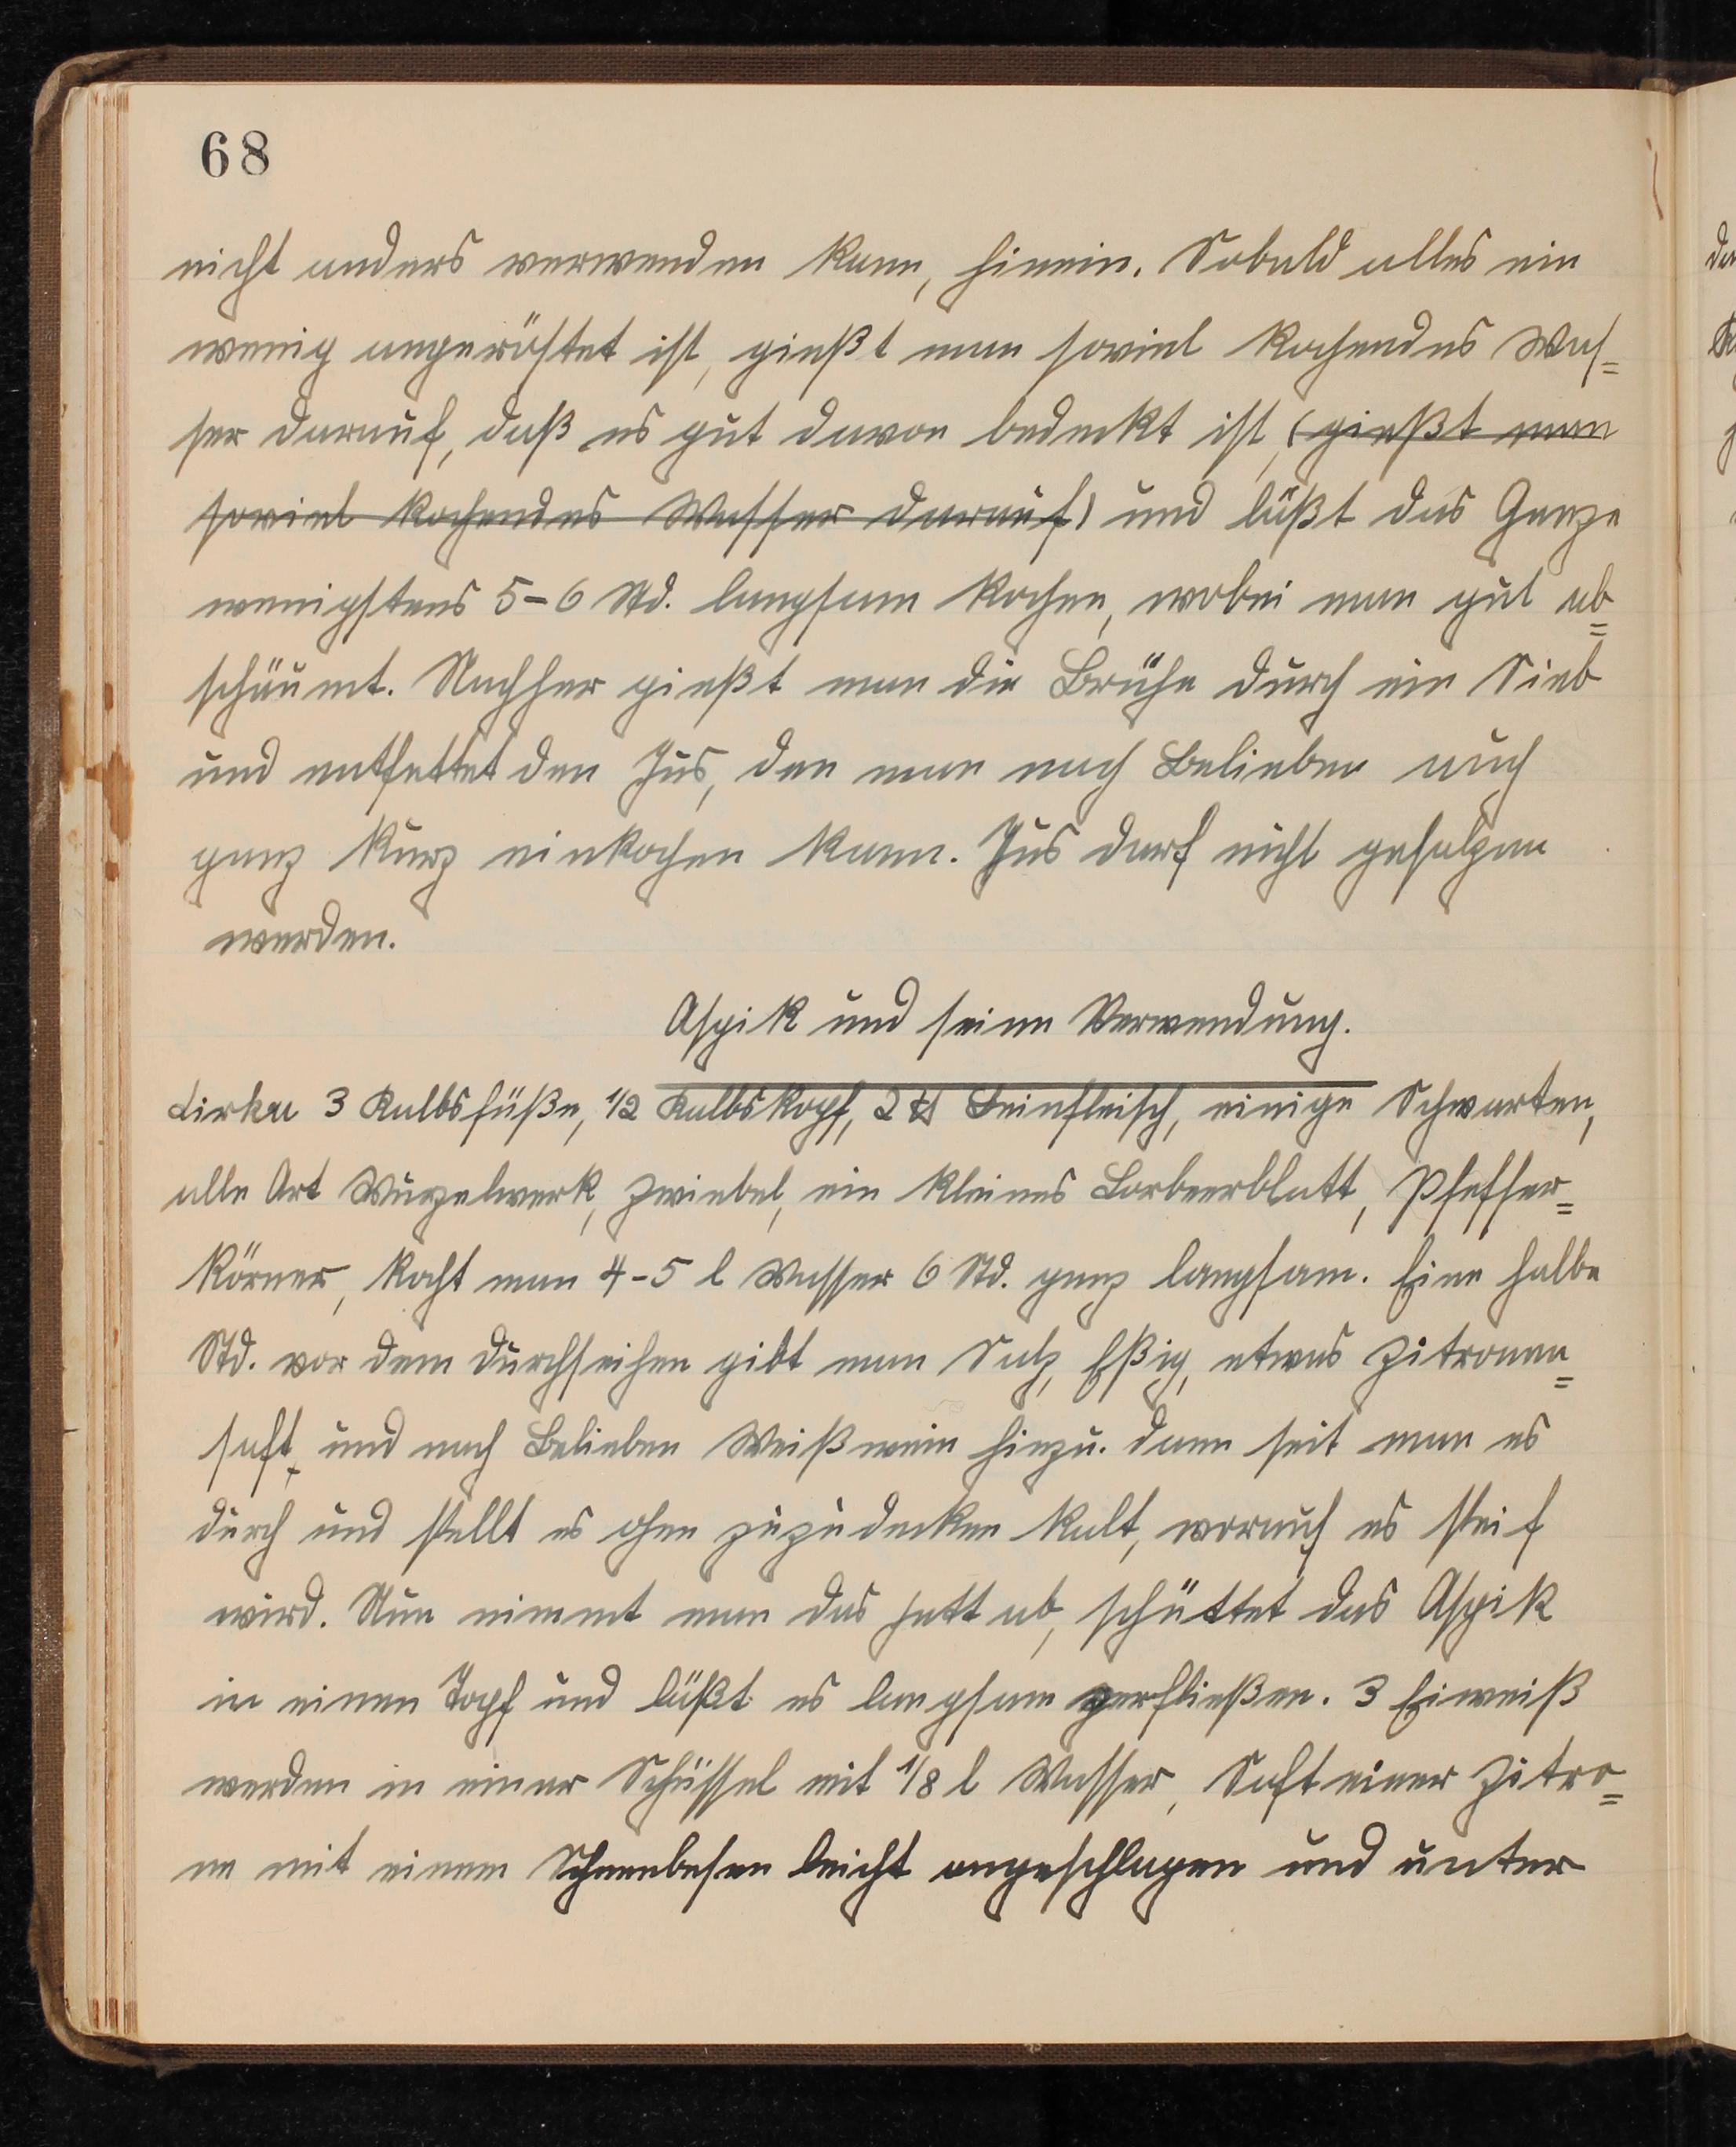 68
nicht anders verwenden kann, hinein. Sobald alles ein
wenig angeröstet ist, gießt man soviel kochendes Was=
ser darauf, daß es gut davon bedeckt ist, (gießt man
soviel kochendes Wasser darauf) und läßt das Ganze
wenigstens 5-6 Std. langsam kochen, wobei man gut ab=
schäumt. Nachher gießt man die Brühe durch ein Sieb
und entfettet den Jus, den man nach Belieben auch
ganz kurz einkochen kann. Jus darf nicht gesalzen
werden.
Aspik und seine Verwendung.
Cirka 3 Kalbsfüße, 1/2 Kalbskopf, 2 ℔ Beinfleisch, einige Schwarten,
alle Art Wurzelwerk, Zwiebel, ein kleines Lorbeerblatt, Pfeffer=
körner, kocht man 4-5 l Wasser 6 Std. ganz langsam. Eine halbe
Std. vor dem durchseihen gibt man Salz, Eßig, etwas Zitronen=
saft, und nach Belieben Weißwein hinzu. dann seit man es
durch und stellt es ohne zuzudecken kalt, worauf es steif
wird. Nun nimmt man das Fett ab, schüttet das Aspik
in einen Topf und läßt es langsam zerfließen. 3 Eiweiß
werden in einer Schüssel mit 1/8 l Wasser, Saft einer Zitro=
ne mit einem Schneebesen leicht angeschlagen und unter